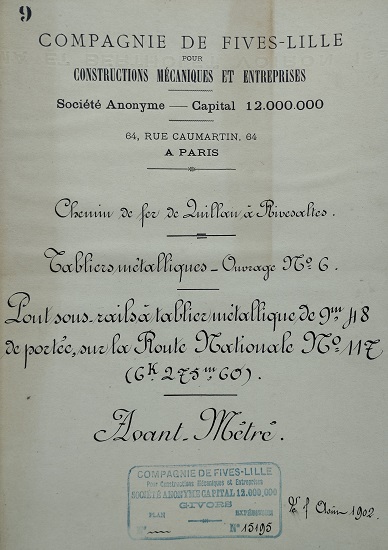 9
COMPAGNIE DE FIVES-LILLE
POUR
CONSTRUCTIONS MÉCANIQUES ET ENTREPRISES
Société Anonyme — Capital 12.000.000
64, RUE CAUMARTIN, 64
A PARIS
Chemin de fer de Quillan à Rivesaltes.
Tabliers métalliques - Ouvrage Nº 6.
Pont sous-rails à tablier métallique de 9m,48
de portée, sur la Route Nationale Nº 117
(6K 275m 60).
Avant-Métré.
COMPAGNIE DE FIVES-LILLE
Pour Constructions Mécaniques et Entreprises
SOCIÉTÉ ANONYME CAPITAL 12.000.000
GIVORS
PLAN
Nº Nº 15195
1902.